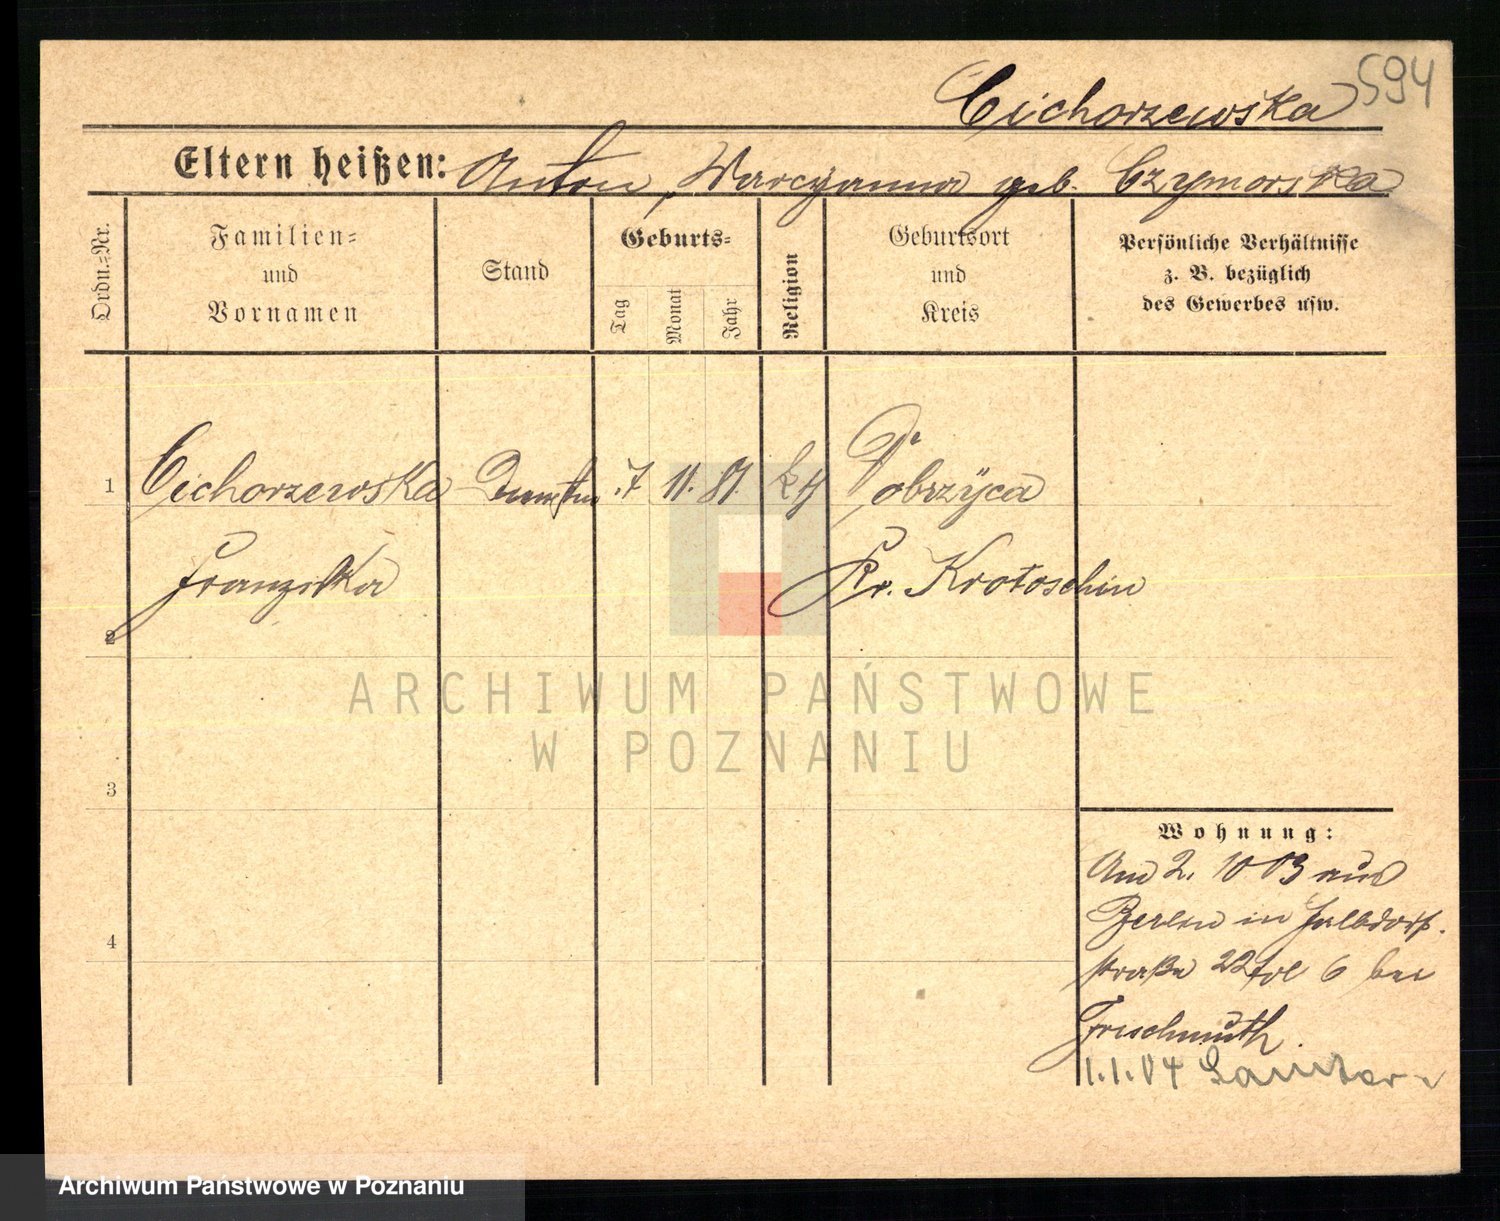 594
Cichorzewska
Eltern heißen: Anton, Marcyanna geb. Czymorska
Ordn.=Nr.
Familien=
und
Vornamen
Stand
Geburts=
Tag
Monat
Jahr
Religion
Geburtsort
und
Kreis
Persönliche Verhältnisse
z. B. bezüglich
des Gewerbes usw.
1 Cichorzewska 7 11. 81. Dobrzyca
Franziska Kr. Krotoschin
2
ARCHIWUM PAŃSTWOWE
W POZNANIU
3
Wohnung:
Am 2. 10 03 aus
Berlin in
4
straße 22 6 bei
Frischmuth.
1.1.04 Samter
Archiwum Państwowe w Poznaniu